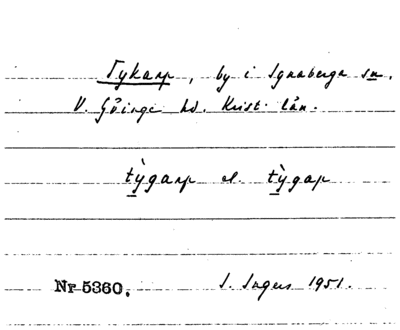 Tykarp, by i Ignaberga sn,
V. Göinge hd. Krist. län.
tỳgarp el. tỳgap
Nr 5360. S. Ingers 1951.